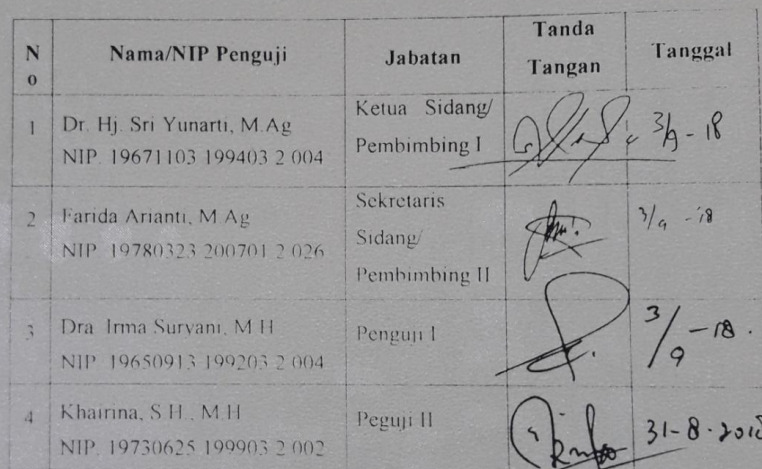 No
Nama/NIP Penguji
Jabatan
Tanda
Tangan
Tanggal
1
Dr. Hj. Sri Yunarti, M.Ag
NIP. 19671103 199403 2 004
Ketua Sidang/
Pembimbing I
3/9 - 18
2
Farida Arianti, M.Ag
NIP. 19780323 200701 2 026
Sekretaris
Sidang/
Pembimbing II
3/9 - 18
3
Dra. Irma Suryani, M.H
NIP. 19650913 199203 2 004
Penguji I
3/9 - 18.
4
Khairina, S.H., M.H
NIP. 19730625 199903 2 002
Peguji II
31-8-2018